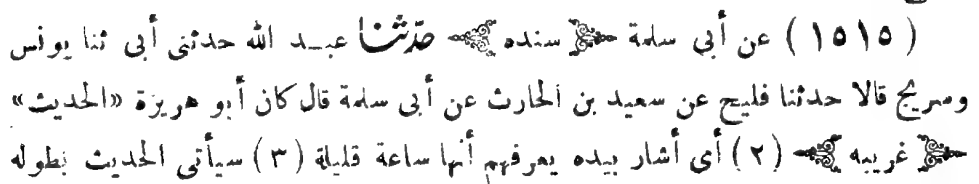 ( ١٥١٥ ) عن أبي سلمة ﴿ سنده ﴾ حدثنا عبد الله حدثنى أبى ثنا يونس
وسريج قالا حدثنا فليح عن سعيد بن الحارث عن أبى سلمة قال كان أبو هريرة «الحديث»
﴿ غريبه ﴾ (٢) أى أشار بيده يعرفهم أنها ساعة قليلة (٣) سيأتى الحديث بطوله